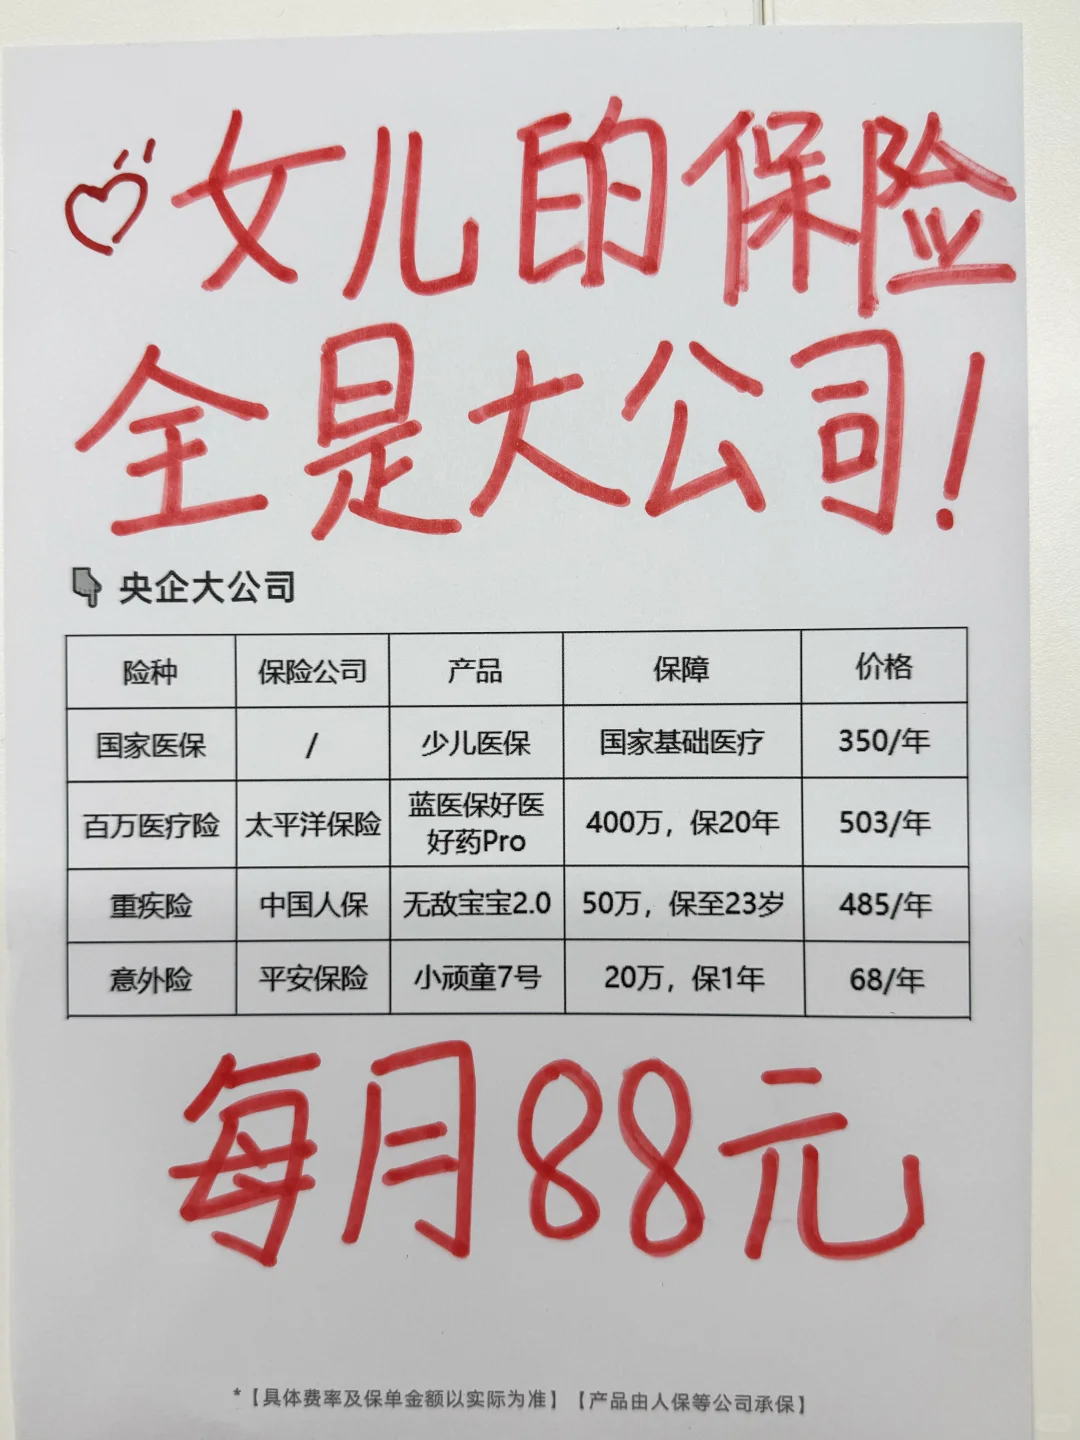 女儿的保险
全是大公司!
央企大公司
险种 保险公司 产品 保障 价格
国家医保 / 少儿医保 国家基础医疗 350/年
百万医疗险 太平洋保险 蓝医保好医好药Pro 400万，保20年 503/年
重疾险 中国人保 无敌宝宝2.0 50万，保至23岁 485/年
意外险 平安保险 小顽童7号 20万，保1年 68/年
每月88元
*【具体费率及保单金额以实际为准】【产品由人保等公司承保】